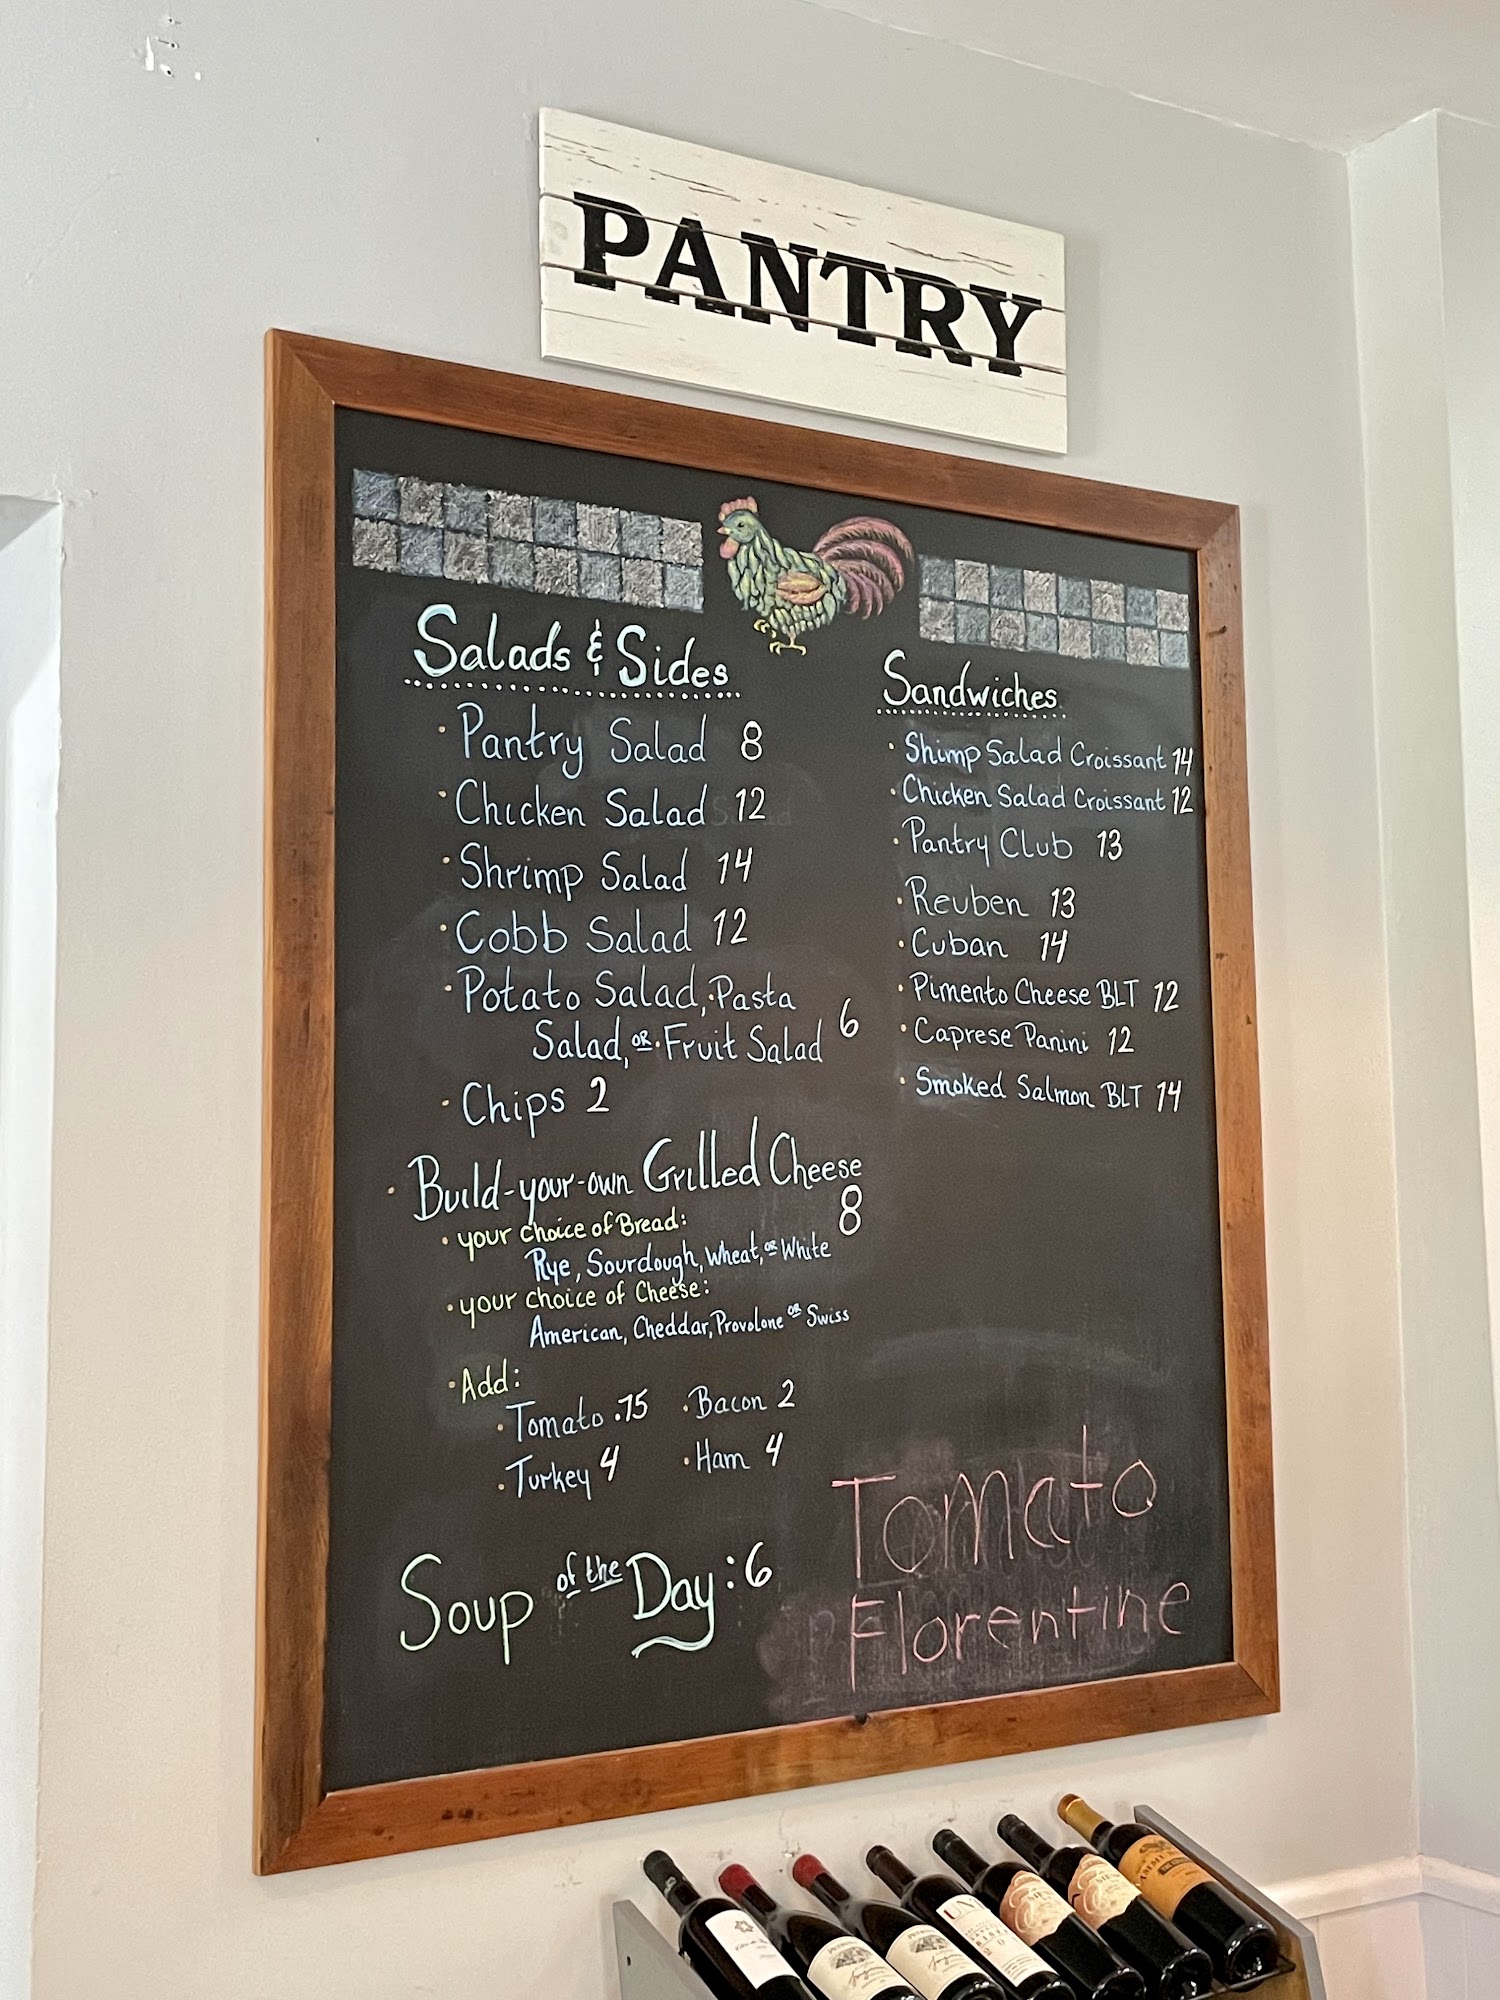 PANTRY
Salads & Sides
· Pantry Salad 8
· Chicken Salad 12
· Shrimp Salad 14
· Cobb Salad 12
· Potato Salad, · Pasta
Salad, OR · Fruit Salad 6
· Chips 2
· Build-your-own Grilled Cheese
8
· your choice of Bread:
Rye, Sourdough, Wheat, OR White
· your choice of Cheese:
American, Cheddar, Provolone OR Swiss
· Add:
· Tomato .75 · Bacon 2
· Turkey 4 · Ham 4
Soup of the Day: 6
Sandwiches
· Shimp Salad Croissant 14
· Chicken Salad Croissant 12
· Pantry Club 13
· Reuben 13
· Cuban 14
· Pimento Cheese BLT 12
· Caprese Panini 12
· Smoked Salmon BLT 14
Tomato
Florentine